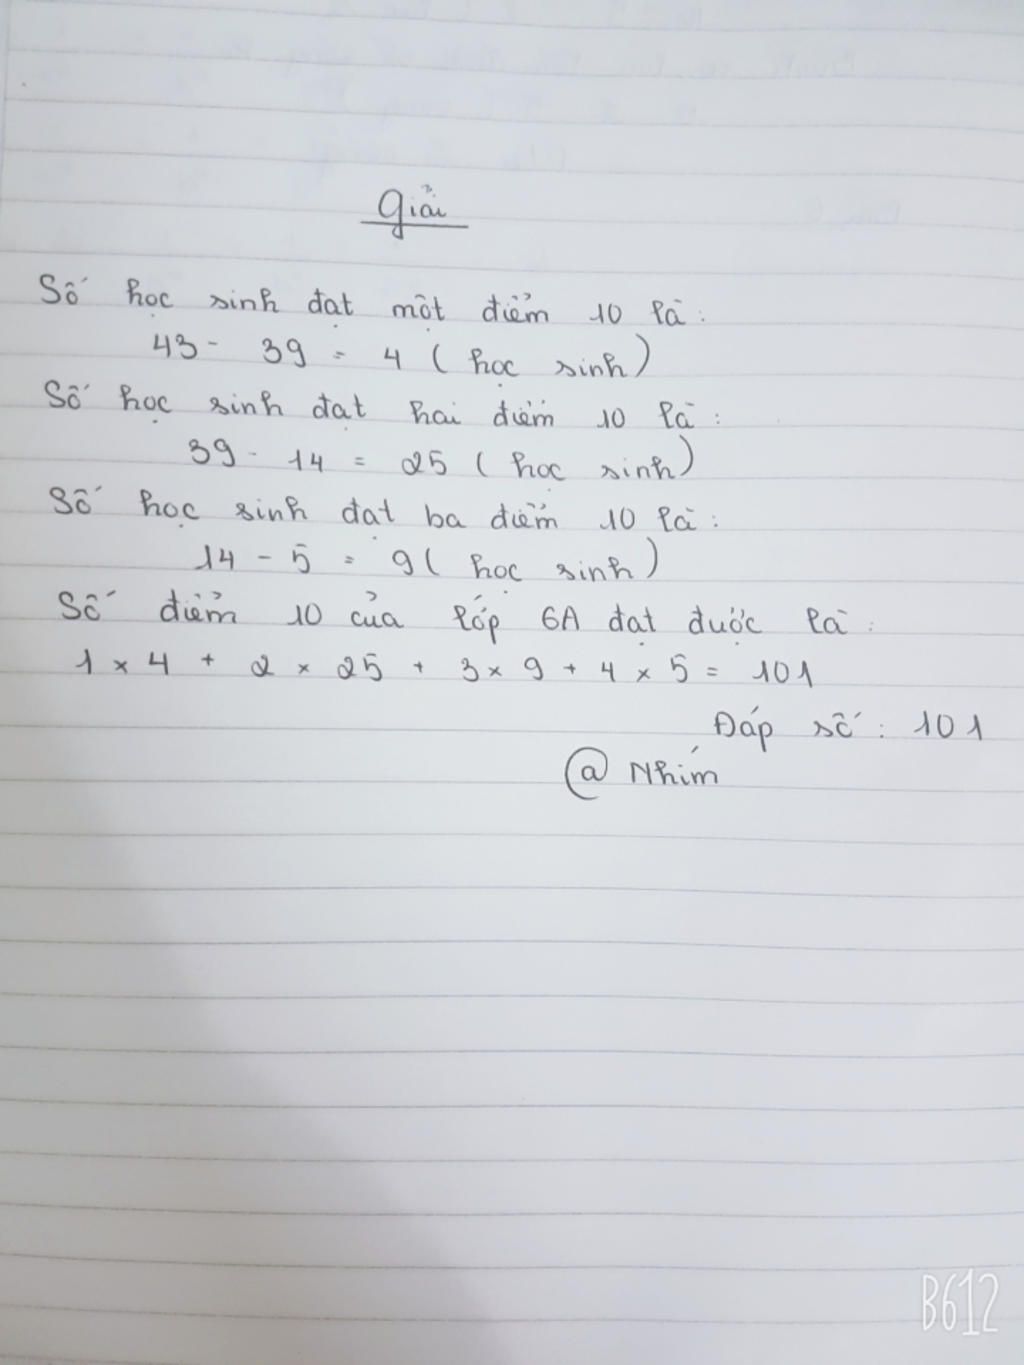 Giải
Số học sinh đạt một điểm 10 là:
43 - 39 = 4 ( học sinh)
Số học sinh đạt hai điểm 10 là:
39 - 14 = 25 ( học sinh)
Số học sinh đạt ba điểm 10 là:
14 - 5 = 9 ( học sinh)
Số điểm 10 của lớp 6A đạt được là:
1 x 4 + 2 x 25 + 3 x 9 + 4 x 5 = 101
Đáp số: 101
@ Nhím
B612